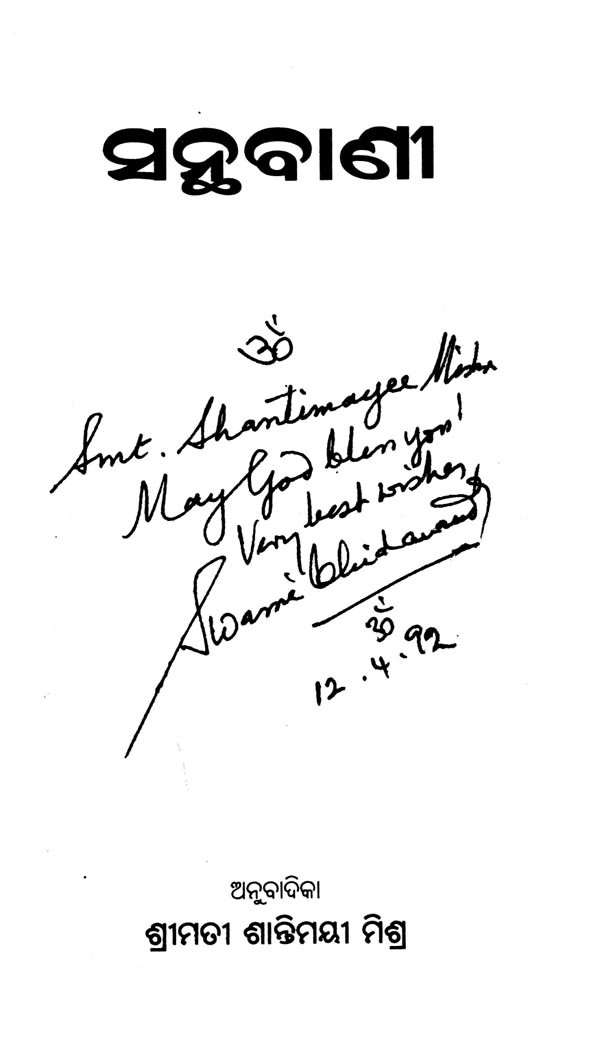 ସନ୍ଥବାଣୀ
ॐ
Smt. Shantimayee Mishra
May God bless you!
Very best wishes,
Swami Chidananda
ॐ
12.4.92
ଅନୁବାଦିକା
ଶ୍ରୀମତୀ ଶାନ୍ତିମୟୀ ମିଶ୍ର